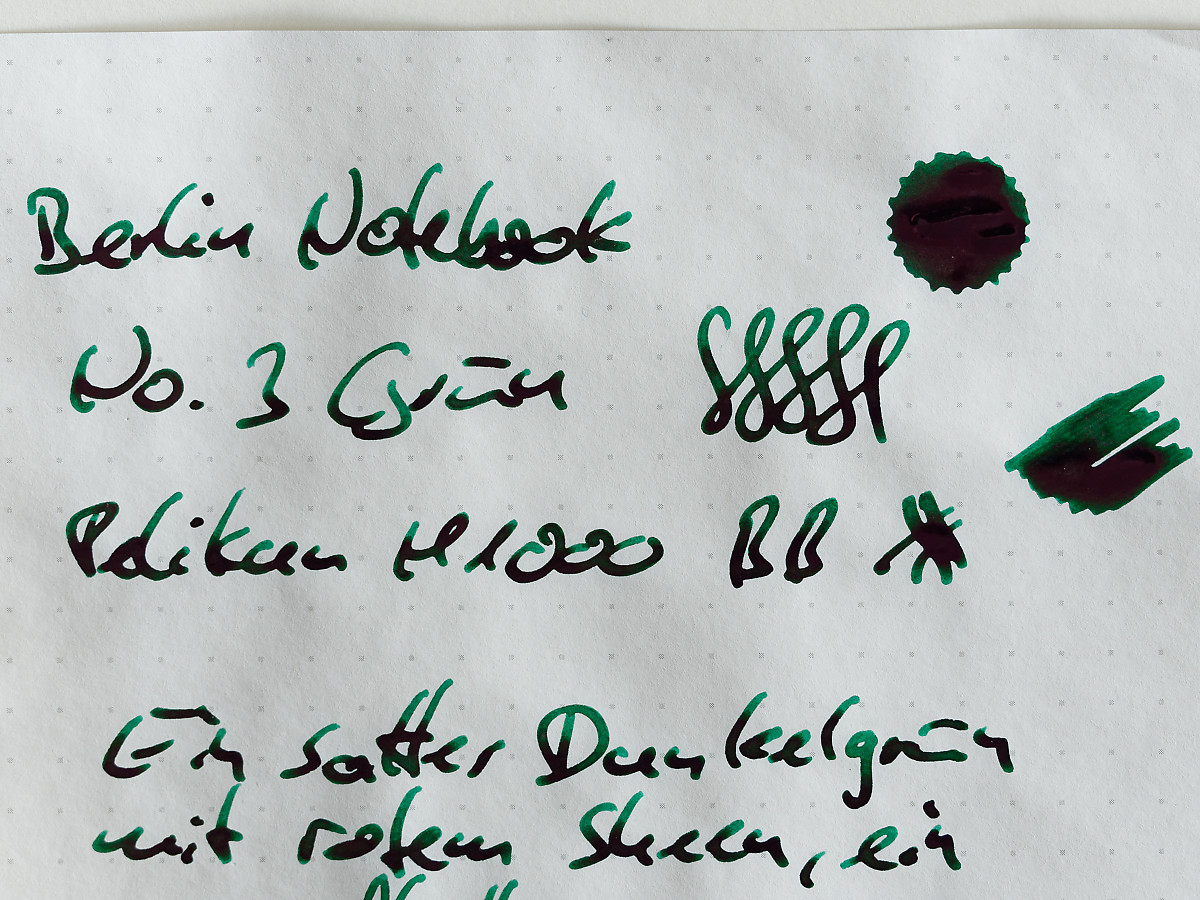 Berlin Notebook
No. 3 Grün
Pelikan M1000 BB
Ein satter Dunkelgrün
mit rotem Sheen, ein